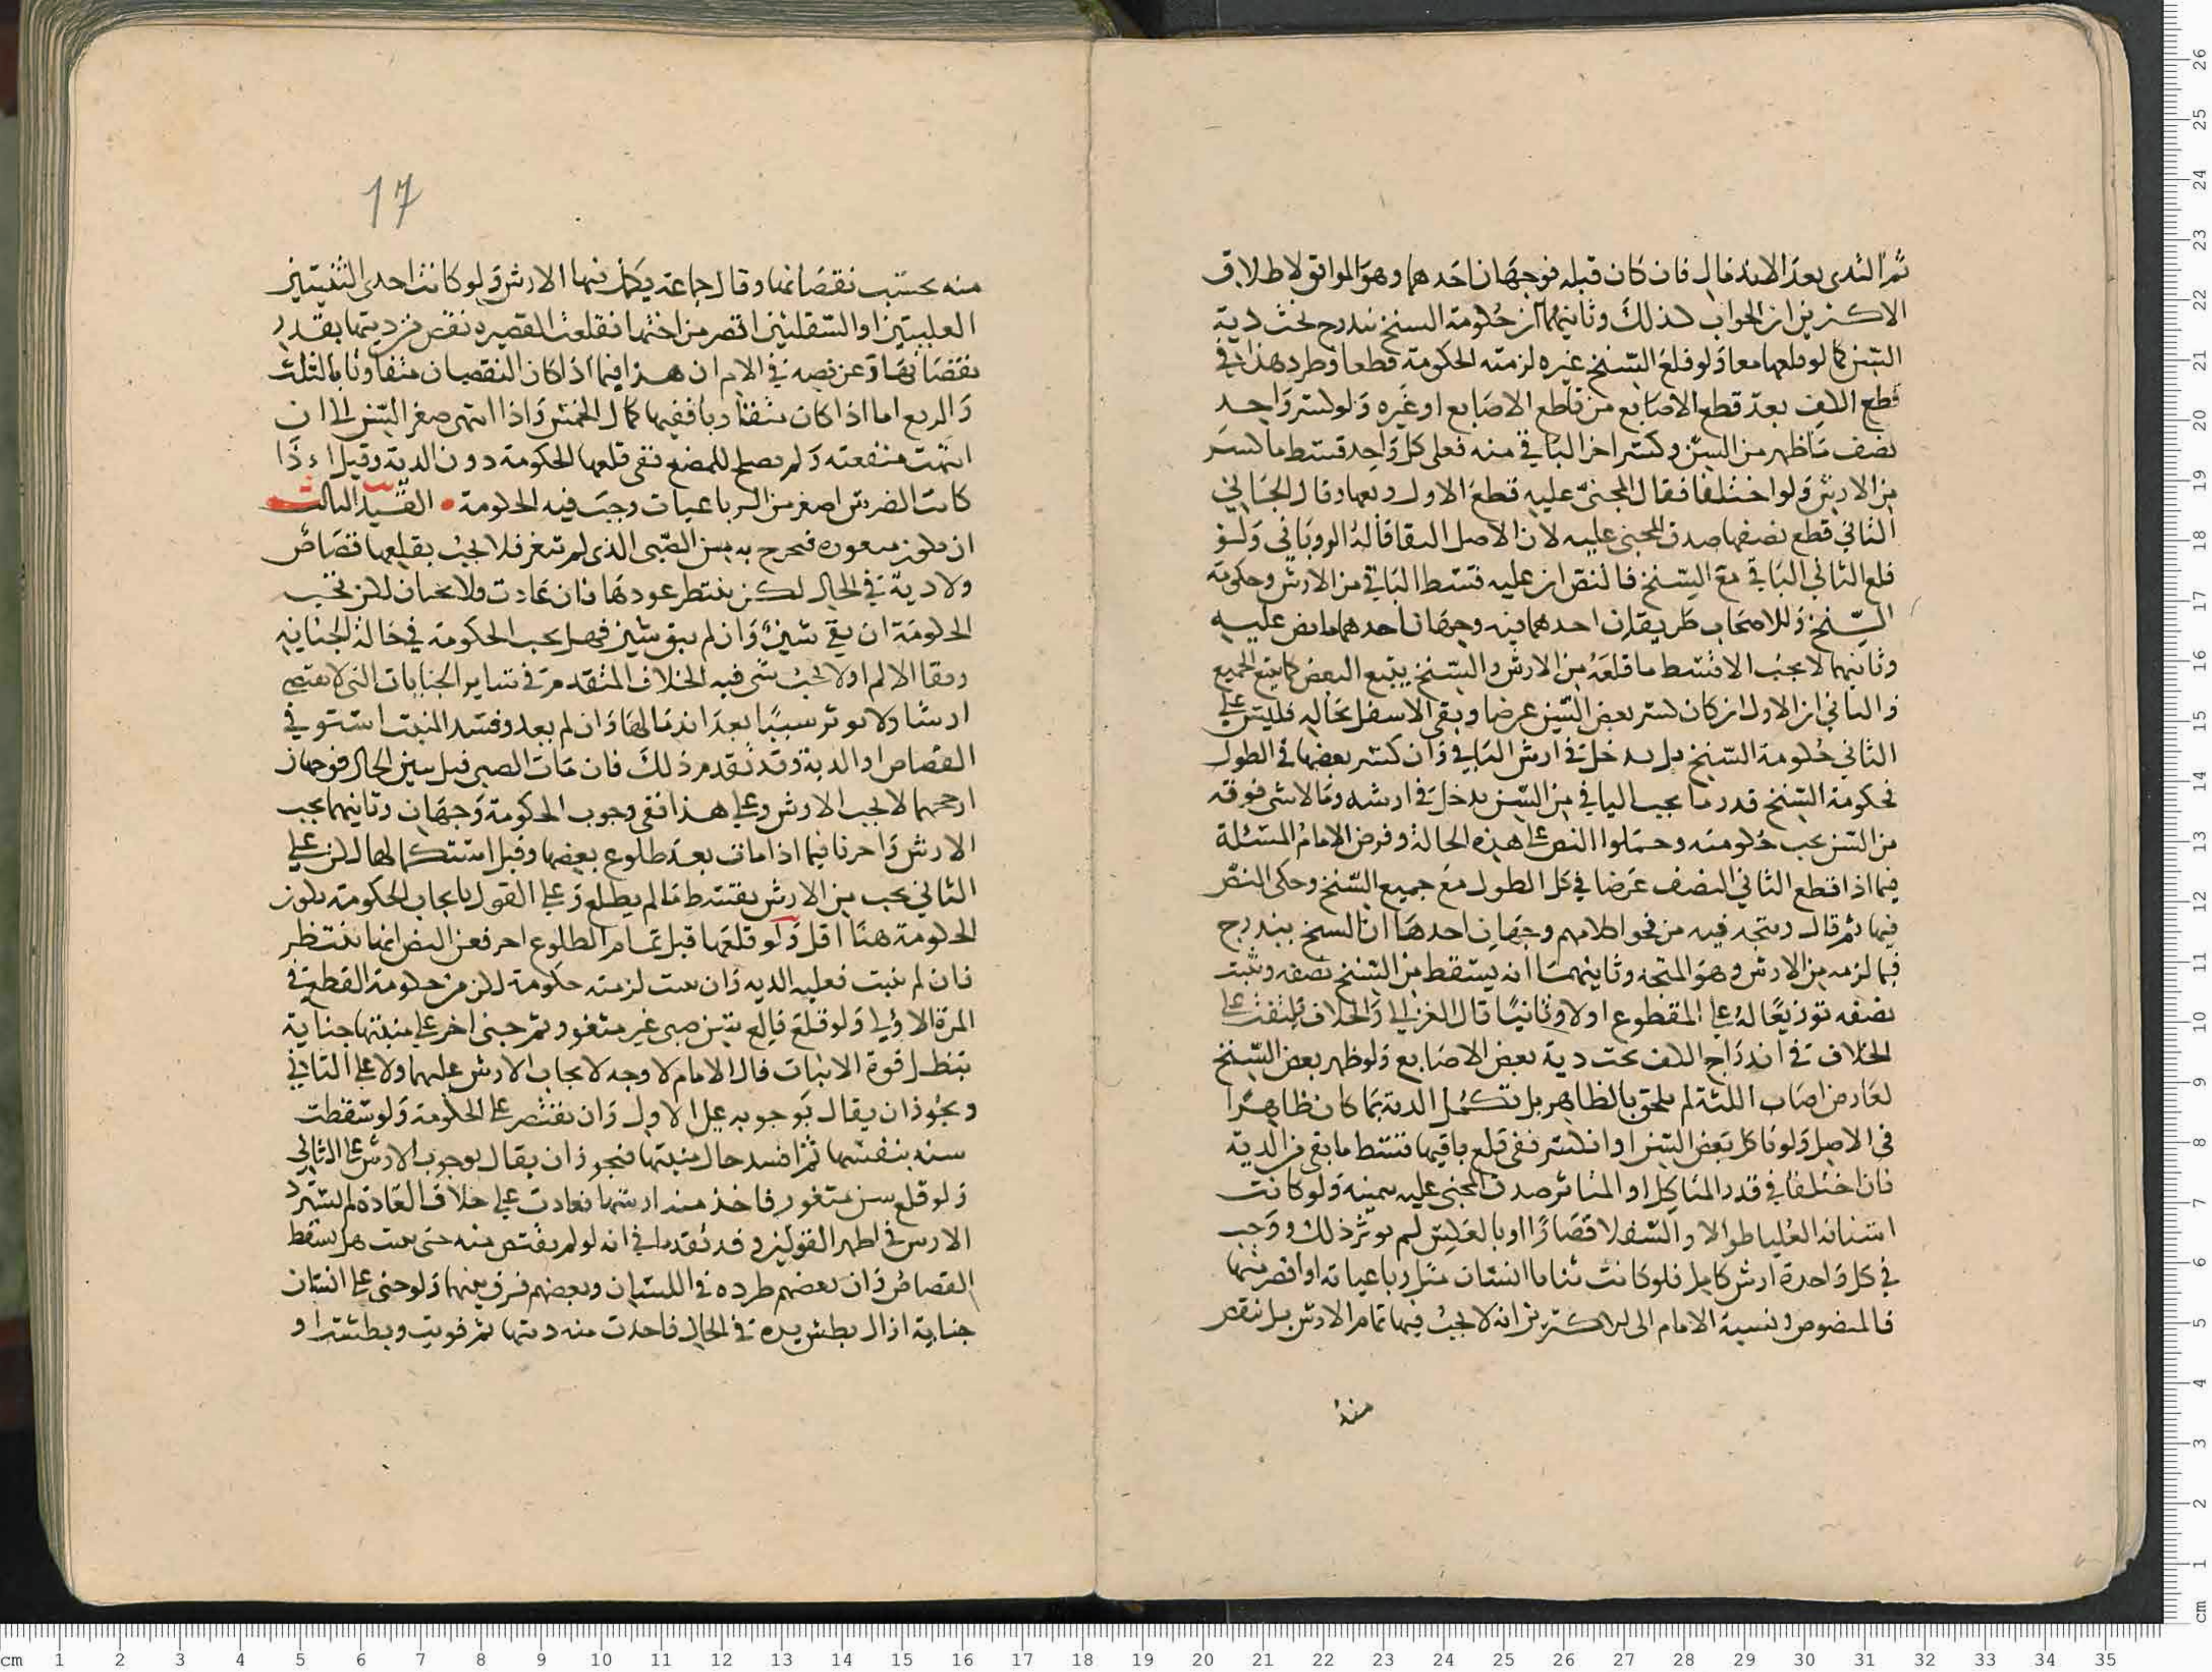 ثم الثدى بعد الاندمال فان كان قبله فوجهان احدهما وهو الموافق لاطلاق
الاكثرين ان الجواب كذلك وثانيهما ان حكومة السنخ تندرج تحت دية
السن كما لو قلعها معا ولو قلع السنخ غيره لزمته الحكومة قطعا وطرد هذا في
قطع الكف بعد قطع الاصابع من قاطع الاصابع او غيره ولو كسر واحد
نصف ما ظهر من السن وكسر اخر الباقي منه فعلى كل واحد قسط ما كسر
من الارش ولو اختلفا فقال المجنى عليه قطع الاول ربعها وقال الجاني
الثاني قطع نصفها صدق المجنى عليه لان الاصل البقا قاله الروياني ولو
قلع الثاني الباقي مع السنخ فالنص ان عليه قسط الباقي من الارش وحكومة
السنخ وللاصحاب طريقان احدهما فيه وجهان احدهما ما نص عليه
وثانيهما لا يجب الا قسط ما قلعه من الارش والسنخ يتبع البعض كما يتبع الجميع
والثاني ان الاول ان كان كسر بعض السن عرضا وبقى الاسفل بحاله فليس على
الثاني حكومة السنخ بل يدخل في ارش الباقي وان كسر بعضها في الطول
فحكومة السنخ قدر ما يجب الباقي من السن يدخل في ارشه وما لا شى فوقه
من السن يجب حكومته وحملوا النص على هذه الحالة وفرض الامام المسئلة
فيما اذا قطع الثاني النصف عرضا في كل الطول مع جميع السنخ وحكى النص
فيها ثم قال ويتجه فيه من فحوى كلامهم وجهان احدها ان السنخ يندرج
فيما لزمه من الارش وهو المتجه وثانيهما انه يسقط من السنخ نصفه ويثبت
نصفه توزيعا له على المقطوع اولا وثانيا قال الغزالي والخلاف يلتفت على
الخلاف في اندراج الكف تحت دية بعض الاصابع ولو ظهر بعض السنخ
لعارض اصاب اللثة لم يلحق بالظاهر بل تكمل الدية بما كان ظاهرا
في الاصل ولو تاكل بعض السن او انكسر ففي قلع باقيها قسط ما بقى من الدية
فان اختلفا في قدر المتاكل او المتناثر صدق المجنى عليه بيمينه ولو كانت
اسنانه العليا طوالا والسفلا قصارا او بالعكس لم يوثر ذلك ووجب
في كل واحدة ارش كامل فلو كانت ثنايا انسان مثل رباعياته او اقصر منها
فالمنصوص ونسبه الامام الى الاكثرين انه لا يجب فيها تمام الارش بل ينقص
منه
17
منه بحسب نقصانها وقال جماعة يكمل فيها الارش ولو كانت احدى الثنيتين
العليتين او السفلتين اقصر من اختها فقلعت القصيرة نقص من ديتها بقدر
نقصانها وعن نصه في الام ان هذا فيما اذا كان النقصان متفاوتا بالثلث
والربع اما اذا كان متقاربا ففيها كمال الخمس واذا انتهى صغر السن الى ان
انتهت منفعته ولم يصلح للمضغ ففي قلعها الحكومة دون الدية وقيل اذا
كانت الضرس اصغر من الرباعيات وجب فيه الحكومة • القيد الثالث
ان تكون مثغورة فتخرج به سن الصبى الذى لم تثغر فلا يجب بقلعها قصاص
ولا دية في الحال لكن ينتظر عودها فان عادت فلا يجبان لكن تجب
الحكومة ان بقى شين وان لم يبق شين فهل يجب الحكومة في حالة الجناية
وبقا الالم او لا يجب شى فيه الخلاف المتقدم في ساير الجنايات التي لا تقتضى
ارشا ولا توثر سببا بعد اندمالها وان لم يعد وفسد المنبت استوفي
القصاص او الدية وقد تقدم ذلك فان مات الصبي قبل تبين الحال فوجهان
ارجحهما لا يجب الارش وعلى هذا ففى وجوب الحكومة وجهان وثانيهما يجب
الارش واجريا فيما اذا مات بعد طلوع بعضها وقبل استكمالها لكن على
الثاني يجب من الارش بقسط ما لم يطلع وعلى القول بايجاب الحكومة يكون
الحكومة هنا اقل ولو قلعها قبل تمام الطلوع اخر فعن النص انها ينتظر
فان لم نبت فعليه الدية وان نبت لزمته حكومة اكثر من حكومة القطع في
المرة الاولى ولو قلع قالع سن صبى غير مثغور ثم جنى اخر على منبتها جناية
تبطل قوة الانبات قال الامام لا وجه لايجاب الارش عليهما ولا على الثاني
ويجوز ان يقال بوجوبه على الاول وان يقتصر على الحكومة ولو سقطت
سنه بنفسها ثم افسد حال منبتها فيجوز ان يقال بوجوب الارش على الثاني
ولو قلع سن مثغور فاخذ منه ارشها فعادت على خلاف العادة لم يسترد
الارش في اظهر القولين وقد تقدما في انه لو لم يقتص منه حتى نبت هل يسقط
القصاص وان بعضهم طرده في اللسان وبعضهم فرق بينهما ولو جنى على انسان
جناية ازال بطش يده في الحال فاخذت منه ديتها ثم قويت وبطشت او